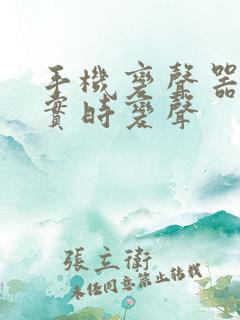 手機變聲器
實時變聲
張立衛
未經同意禁止轉載